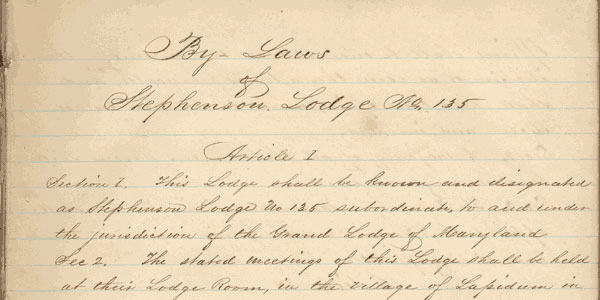 By-Laws
of
Stephenson Lodge No. 135
Article I
Section I. This Lodge shall be known and designated
as Stephenson Lodge No 135 subordinate, to and under
the jurisdiction of the Grand Lodge of Maryland
Sec 2. The stated meetings of this Lodge shall be held
at their Lodge Room, in the village of Lapidum in